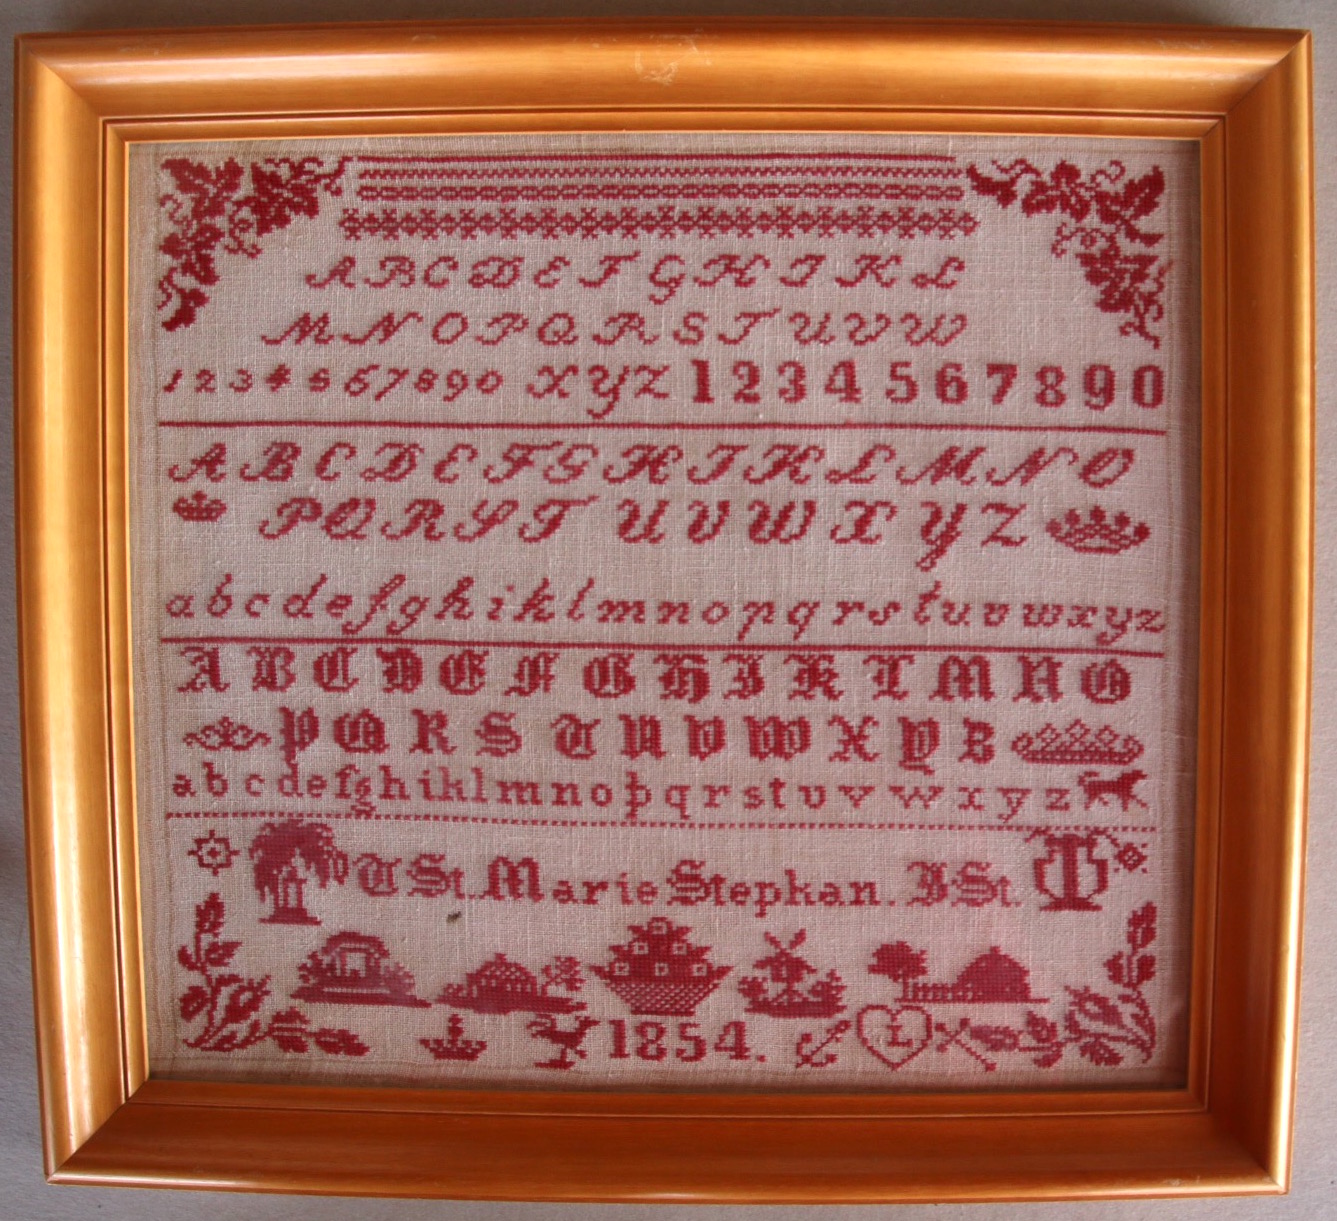 A B C D E F G H I K L
M N O P Q R S T U V W
1 2 3 4 5 6 7 8 9 0 X Y Z 1 2 3 4 5 6 7 8 9 0
A B C D E F G H I K L M N O
P Q R S T U V W X Y Z
a b c d e f g h i k l m n o p q r s t u v w x y z
A B C D E F G H I K L M N O
P Q R S T U V W X Y Z
a b c d e f g h i k l m n o p q r s t u v w x y z
T St. Marie Stephan. J St.
1854. L